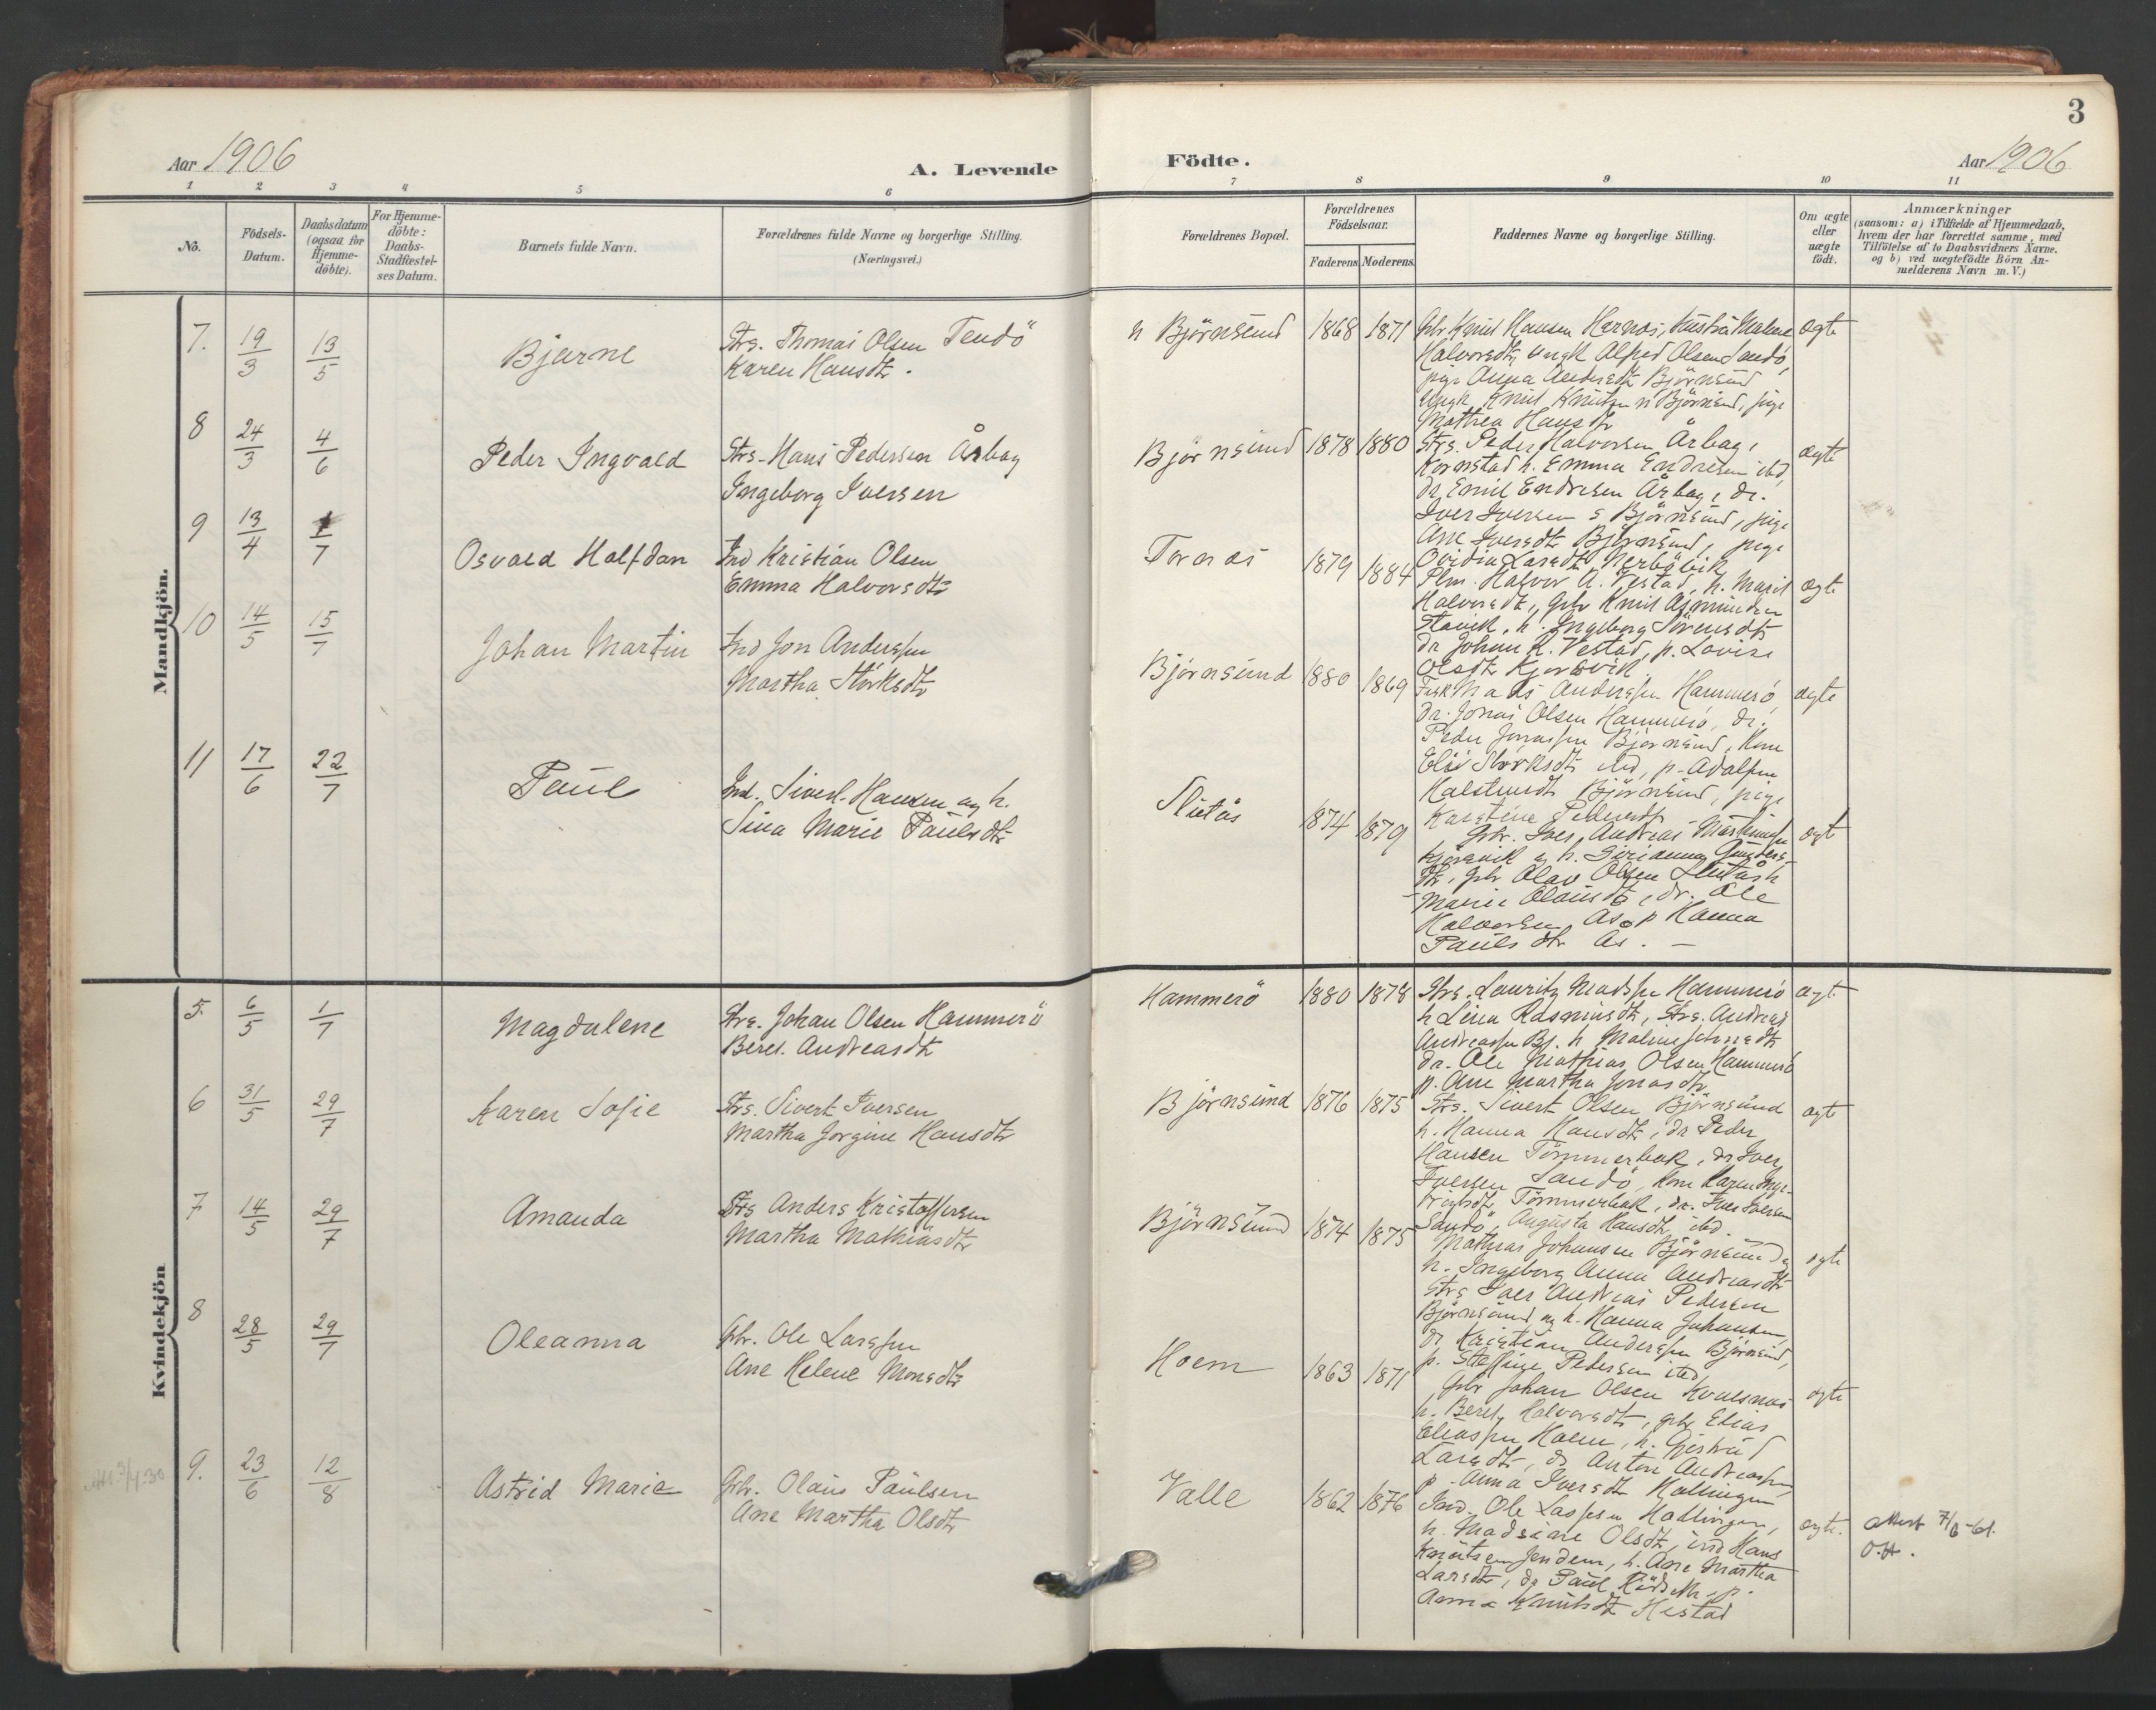 3
Aar 1906
A. Levende
Födte.
Aar 1906
1 2 3 4 5 6 7 8 9 10 11
No.
Födsels-
Datum.
Daabsdatum
(ogsaa for
Hjemme-
döbte).
For Hjemme-
döbte:
Daabs-
Stadfæstel-
ses Datum.
Barnets fulde Navn.
Forældrenes fulde Navne og borgerlige Stilling.
(Næringsvei.)
Forældrenes Bopæl.
Forældrenes
Födselsaar.
Faderens. Moderens.
Faddernes Navne og borgerlige Stilling.
Om ægte
eller
uægte
födt.
Anmærkninger
(saasom: a) i Tilfælde af Hjemmedaab,
hvem der har forrettet samme, med
Tilföielse af to Daabsvidners Navne,
og b) ved uægtefödte Börn An-
melderens Navn m. V.)
Mandkjön.
7. 19/3 13/5 Bjarne
Strs. Thomas Olsen Sandö
Karen Hansdtr.
n Björnsund 1868 1871
Gbr Knut Hansen Harnæs, hustru Malene
Halvorsdtr, ungk Alfred Olsen Sandö,
pige Anna Andersdtr Björnsund
Ungk. Knut Knutsen n Björnsund, pige
Mathea Hansdtr
ægte
8 24/3 4/6 Peder Ingvald
Strs. Hans Pedersen Årbog
Ingeborg Iversen
Björnsund 1878 1880
Strs. Peder Halvorsen Årbog,
Kornstad h. Emma Endresen ibd,
dr Emil Endresen Årbog, dr.
Iver Iversen s Björnsund, pige
Ane Iversdtr Björnsund, pige
Ovidia Larsdtr Nerbövik
ægte
9 13/4 1/7 Osvald Halfdan
Ind Kristian Olsen
Emma Halvorsdtr
Tornæs 1879 1884
Plm. Halvor A. Vestad, h. Marit
Halvorsdtr, gbr Knut Asmundsen
Stavik, h. Ingeborg Sörensdtr
dr Johan K. Vestad, p. Lovise
Olsdtr Kjörsvik
ægte
10 14/5 15/7 Johan Martin
Ind Jon Anderssen
Martha Störksdtr
Björnsund 1880 1869
Fisk Mads Anderssen Hammerö,
dr. Jonas Olsen Hammerö, dr.
Peder Jonassen Björnsund, Kone
Elen Störksdtr ibd, p. Adolfine
Halstensdtr Björnsund, pige
Karstine Pedersdtr
ægte
11 17/6 22/7 Paul
Ind. Sivert Hansen og h.
Sina Marie Paulsdtr
Slutås 1874 1879
Gbr. Iver Andreas Martinussen
Kjörsvik og h. Gurianna Gunders-
dtr, gbr Olav Olsen Slutås h
Marie Olausdtr, dr. Ole
Halvorsen Ås, p Hanna
Paulsdtr Ås. —
ægt
Kvindekjön
5. 6/5 1/7 Magdalene
Strs. Johan Olsen Hammerö
Beret Andreasdtr
Hammerö 1880 1878
Strs. Lauritz Madssen Hammerö
h Lina Rasmusdtr, Strs. Andreas
Andreassen Bj. h Malene
dr. Ole Mathias Olsen Hammerö
p. Ane Martha Jonasdtr
ægt.
6 31/5 29/7 Karen Sofie
Strs. Sivert Iversen
Martha Jorgine Hansdtr
Björnsund 1876 1875
Strs. Sivert Olsen Björnsund
h. Hanna Hansdtr, dr Peder
Hansen Tömmerbak, dr Iver
Iversen Sandö, kone Karen
Tömmerbak, dr. Iver Iversen
Sandö, Augusta Hansdtr ibd.
ægt
7 14/5 29/7 Amanda
Strs Anders Kristoffersen
Martha Mathiasdtr
Björnsund 1874 1875
Mathias Johansen Björnsund og
h. Ingeborg Anna Andreasdtr
Strs Iver Andreas Pedersen
Björnsund og h. Hanna Johansen,
dr Kristian Anderssen Björnsund,
p. Steffine Pedersen ibd
ægte
8 28/5 29/7 Oleanna
Gbr. Ole Larssen
Ane Helene Monsdtr
Hoem 1863 1871
Gbr Johan Olsen Kvalsnæs
h. Beret Halvorsdtr, gbr Elias
Eliassen Hoem, h. Gjertrud
Larsdtr, dr Anton Andreassen,
p. Anna Iversdtr Hollingen
ægte
Att. 3/4.30
9. 23/6 12/8 Astrid Marie
Gbr. Olaus Paulsen
Ane Martha Olsdtr
Valle 1862 1876
Ind. Ole Larssen Hollingen,
h. Madsine Olsdtr, ind Hans
Knutsen Jendem, h. Ane Martha
Larsdtr, dr Paul p.
Anna Knutsdtr Hestad
ægte.
Attest 7/6-61.
O.H.